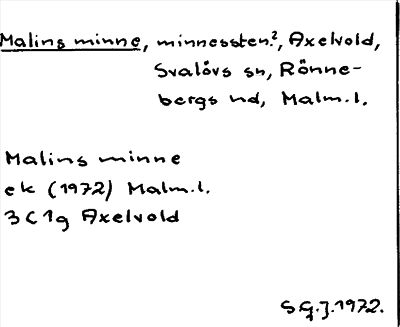 Malins minne, minnessten?, Axelvold,
Svalövs sn, Rönne-
bergs hd, Malm.l.
Malins minne
ek (1972) Malm.l.
3 C 1g Axelvold
S.G.J. 1972.